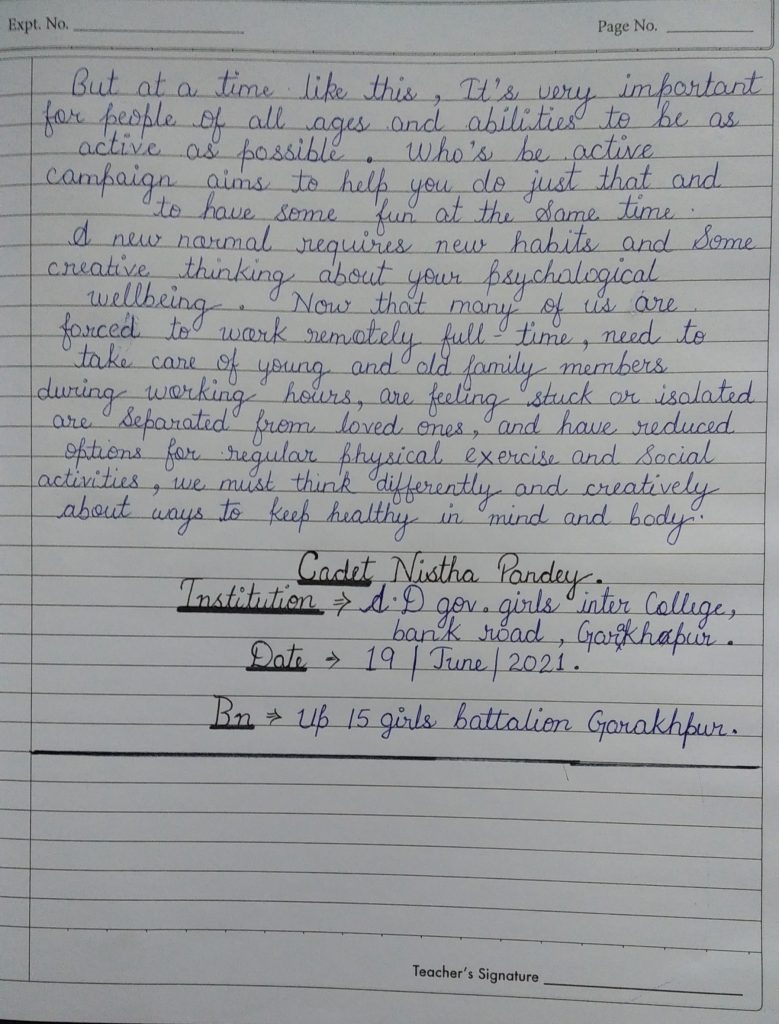 Expt. No.
Page No.
But at a time like this, It's very important
for people of all ages and abilities to be as
active as possible. Who's be active
campaign aims to help you do just that and
to have some fun at the same time.
A new normal requires new habits and Some
creative thinking about your psychological
wellbeing. Now that many of us are
forced to work remotely full-time, need to
take care of young and old family members
during working hours, are feeling stuck or isolated
are Separated from loved ones, and have reduced
options for regular physical exercise and Social
activities, we must think differently and creatively
about ways to keep healthy in mind and body.
Cadet Nistha Pandey.
Institution ⇒ A.D gov. girls inter College,
bank road, Gorakhpur.
Date → 19 | June | 2021.
Bn ⇒ Up 15 girls battalion Gorakhpur.
Teacher's Signature